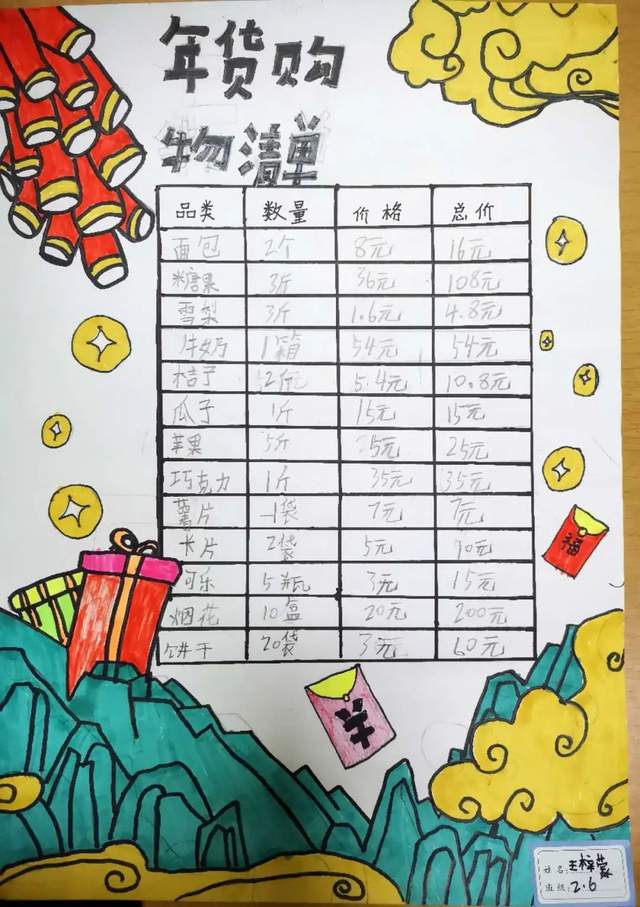 年货购
物清单
品类 数量 价格 总价
面包 2个 8元 16元
糖果 3斤 36元 108元
雪梨 3斤 1.6元 4.8元
牛奶 1箱 54元 54元
桔子 2斤 5.4元 10.8元
瓜子 1斤 15元 15元
苹果 5斤 25元 25元
巧克力 1斤 35元 35元
薯片 1袋 7元 7元
卡片 2袋 5元 10元
可乐 5瓶 3元 15元
烟花 10盒 20元 200元
饼干 20袋 3元 60元
福
羊
姓名:王梓蒙
班级:2.6